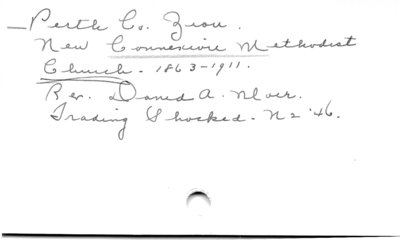 Perth Co. Zion.
New Connexion Methodist
Church. 1863-1911.
Rev. David A.
Trading No '46.